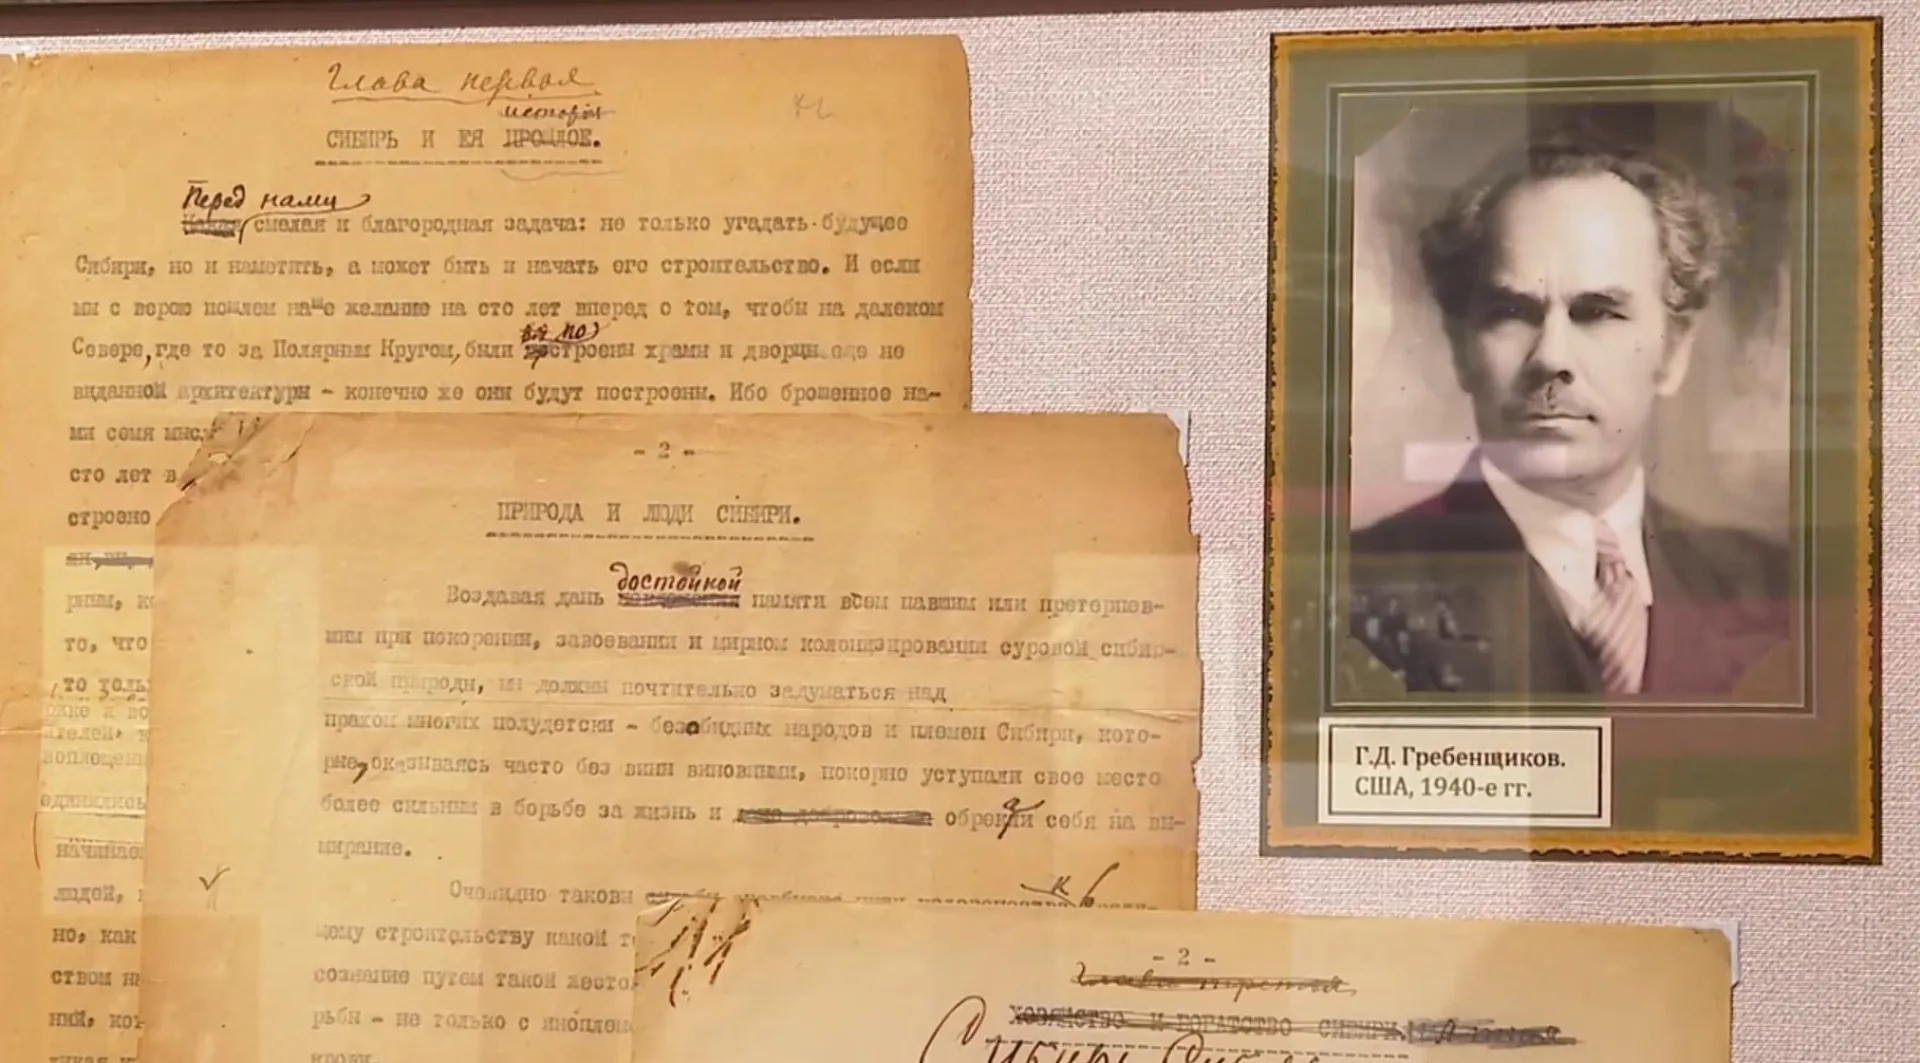 Глава первая
история
СИБИРЬ И ЕЯ ПРОШЛОЕ.
Перед нами
смелая и благородная задача: не только угадать будущее
Сибири, но и наметить, а может быть и начать его строительство. И если
мы с верою пошлем наше желание на сто лет вперед о том, чтобы на далеком
Севере, где то за Полярным Кругом, были построены храмы и дворцы еще не
виданной архитектуры - конечно же они будут построены. Ибо брошенное на-
ми семя
сто лет в
строено
рным,
то, что
то толь
начинае
людей,
но, как
ством
ний,
- 2 -
ПРИРОДА И ЛЮДИ СИБИРИ.
достойной
Воздавая дань памяти всем павшим или претерпев-
шим при покорении, завоевании и мирном колонизировании суровой сибир-
ской природы, мы должны почтительно задуматься над
прахом многих полудетски - безобидных народов и племен Сибири, кото-
рые, оказываясь часто без вины виновными, покорно уступали свое место
более сильным в борьбе за жизнь и обрекая себя на вы-
мирание.
Очевидно таковы
щому строительству какой
сознание путем такой жесто
рьбы - не только с иноплеме
крови.
- 2 -
Глава третья
ХОЗЯЙСТВО И БОГАТСТВО СИБИРИ.
Г.Д. Гребенщиков.
США, 1940-е гг.